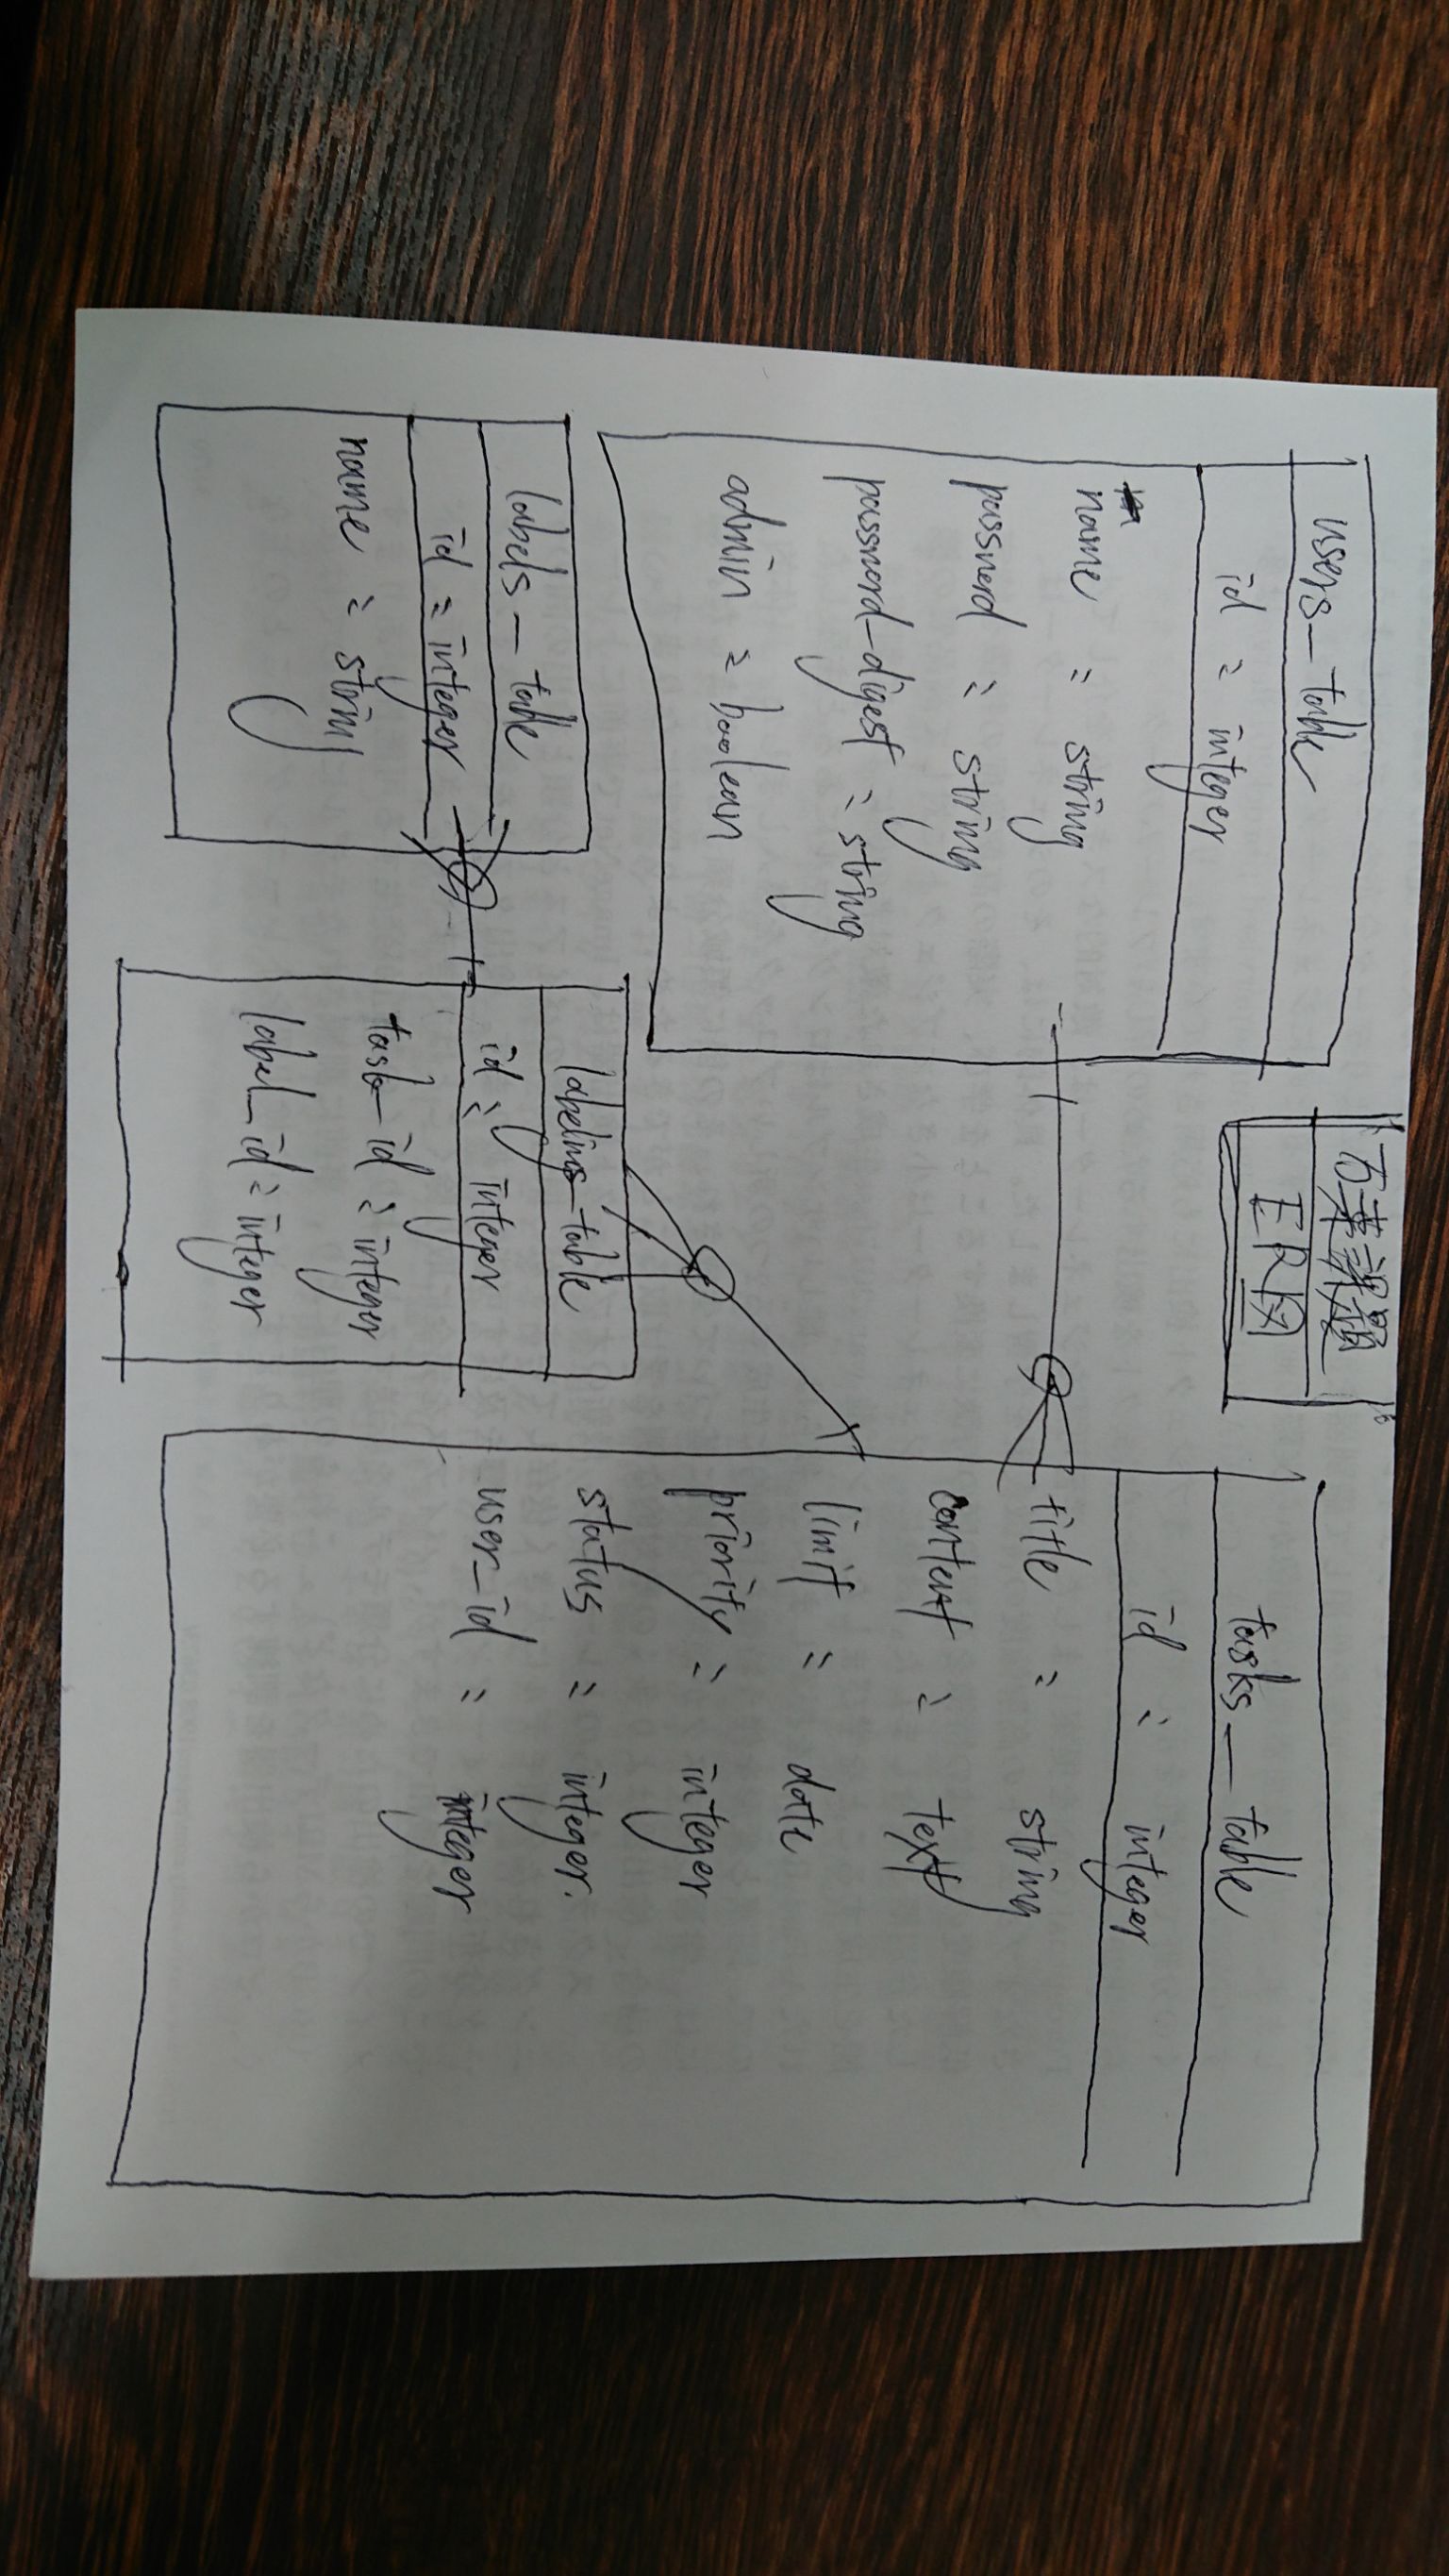 万葉課題
ER図
users_table
id : integer
name : string
passwerd : string
password_digest : string
admin : boolean
tasks_table
id : integer
title : string
content : text
limit : date
priority : integer
status : integer.
user_id : integer
labels_table
id : integer
name : string
labelings_table
id : integer
task_id : integer
label_id : integer